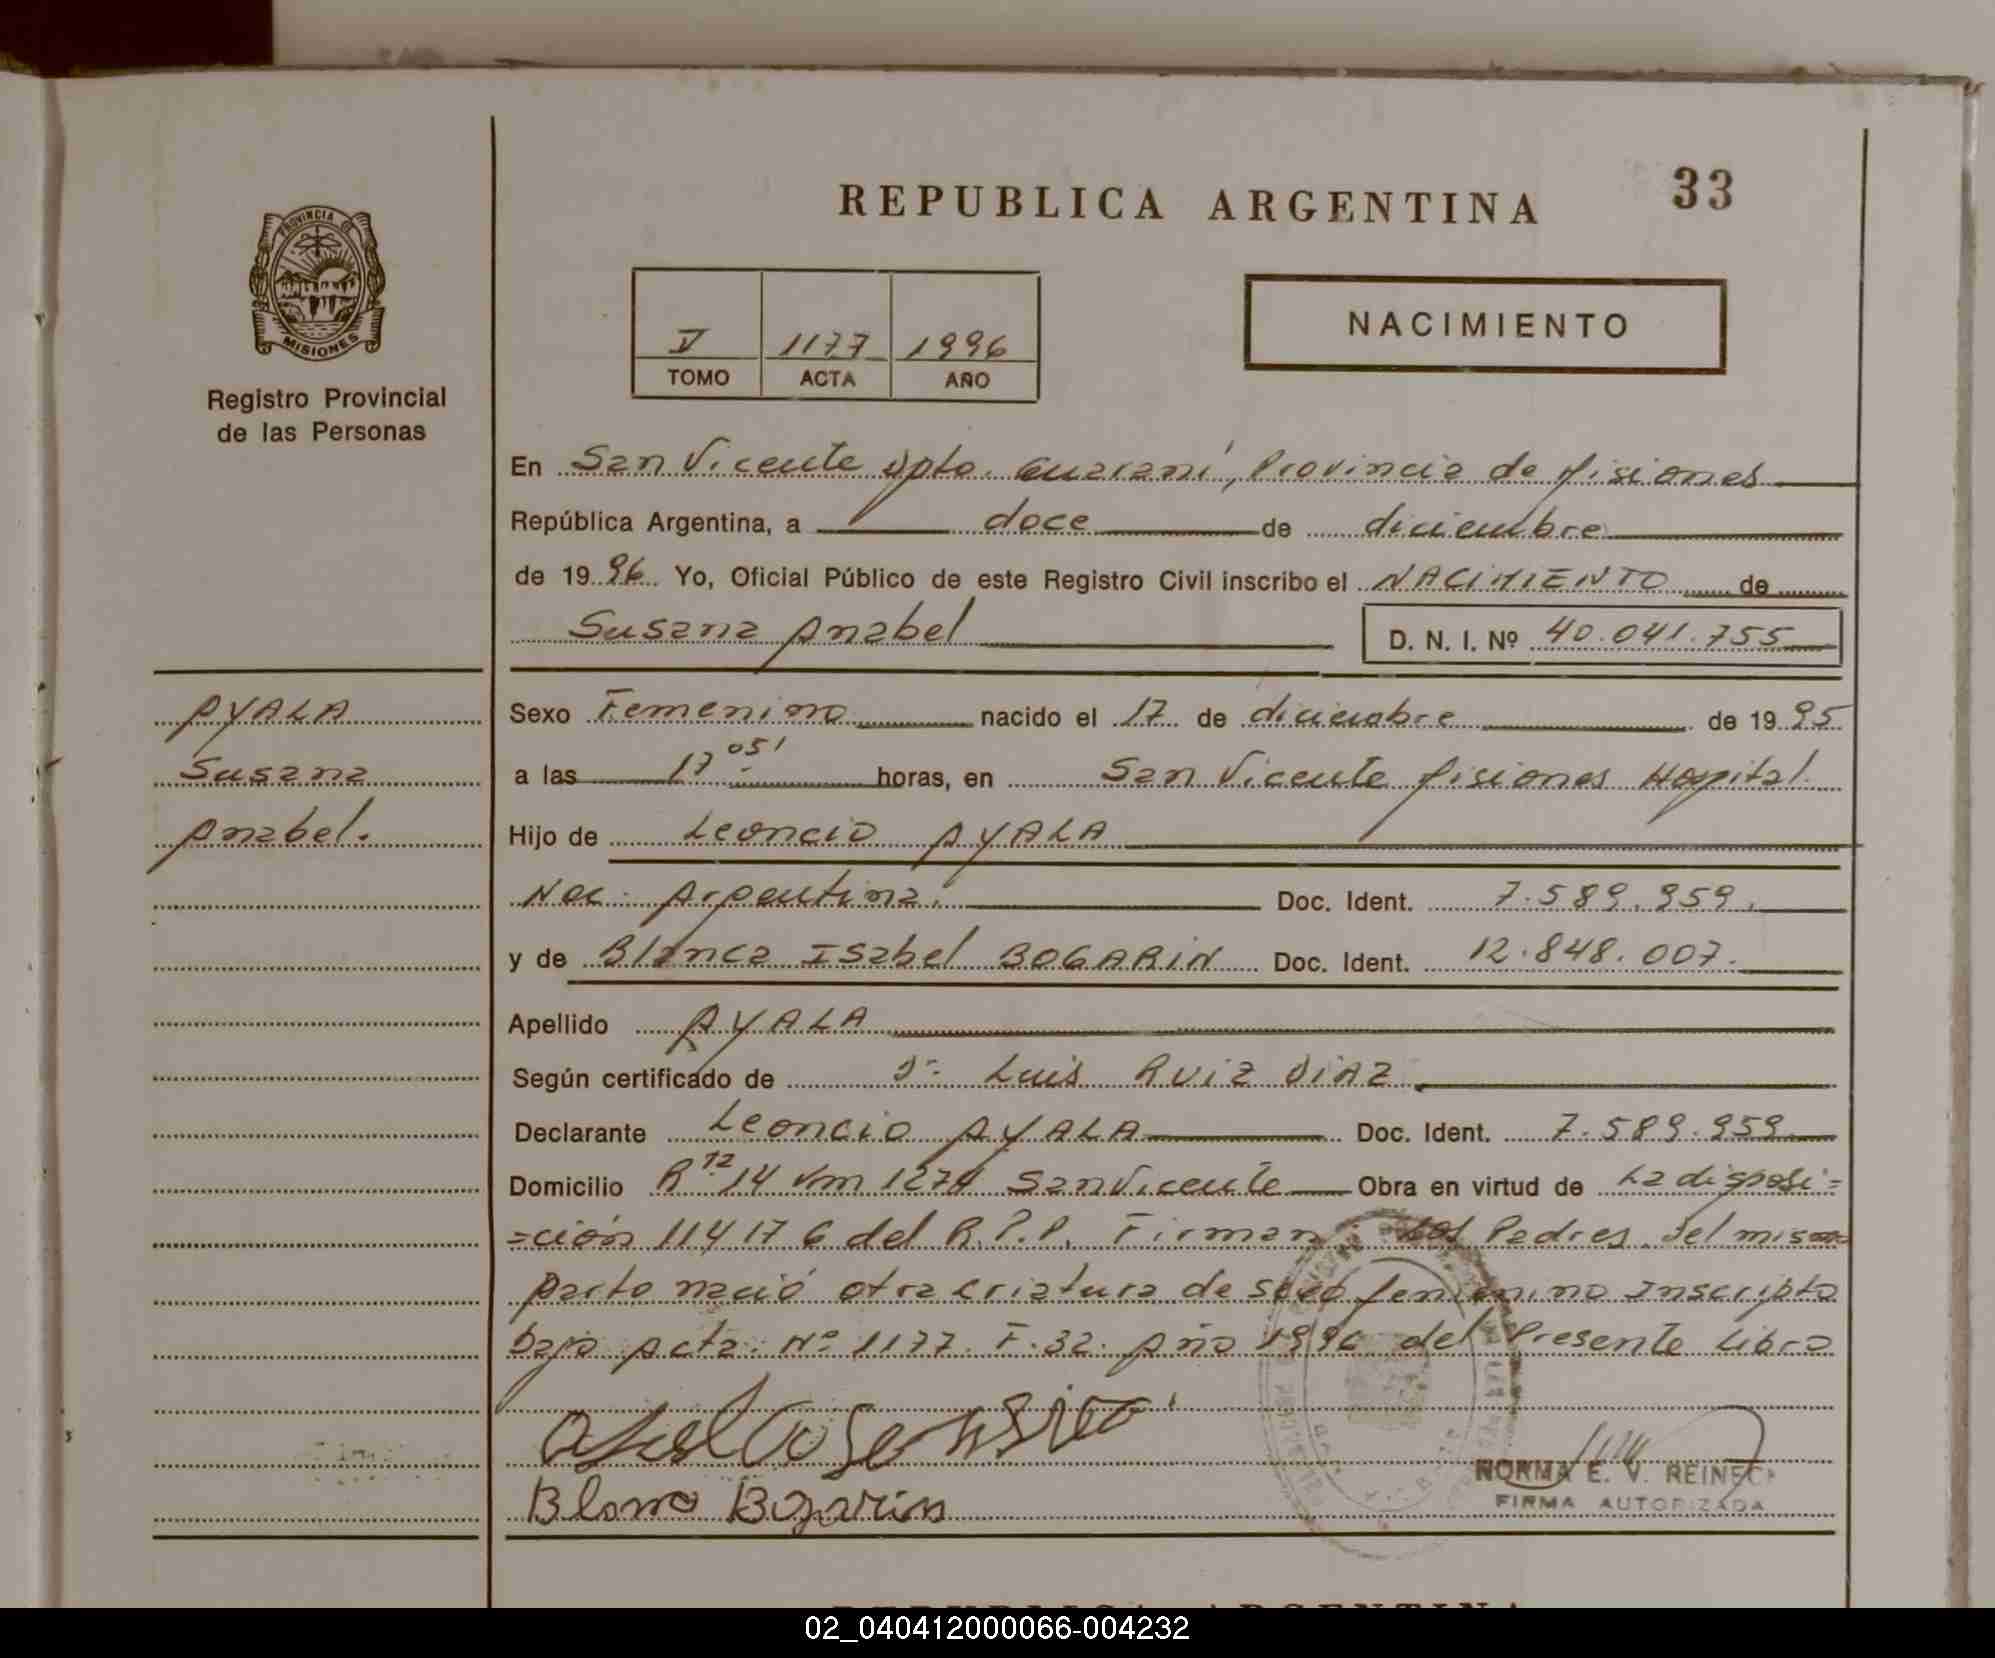 REPUBLICA ARGENTINA 33
PROVINCIA D
MISIONES
Registro Provincial
de las Personas
V 1177 1996
TOMO ACTA AÑO
NACIMIENTO
En San Vicente Dpto. Guaraní, Provincia de Misiones
República Argentina, a doce de diciembre
de 1996 Yo, Oficial Público de este Registro Civil inscribo el NACIMIENTO de
Susana Anabel D. N. I. Nº 40.041.755
AYALA
Susana
Anabel.
Sexo Femenino nacido el 17 de diciembre de 1995
a las 17 05' horas, en San Vicente Misiones Hospital.
Hijo de Leoncio AYALA
Nac. Argentina. Doc. Ident. 7.589.959.
y de Blanca Isabel BOGARIN Doc. Ident. 12.848.007.
Apellido AYALA
Según certificado de Dr. Luis RUIZ DIAZ
Declarante Leoncio AYALA Doc. Ident. 7.589.959
Domicilio San Vicente Obra en virtud de La disposi=
=ción 114176 del R.P.P. Firman: Los Padres. Del mismo
parto nació otra criatura de sexo femenino Inscripta
bajo Acta: Nº 1177. F. 32. Año 1996 del Presente Libro
Blanca Bogarin
NORMA E. V. REINECK
FIRMA AUTORIZADA
REPUBLICA ARGENTINA
02_040412000066-004232